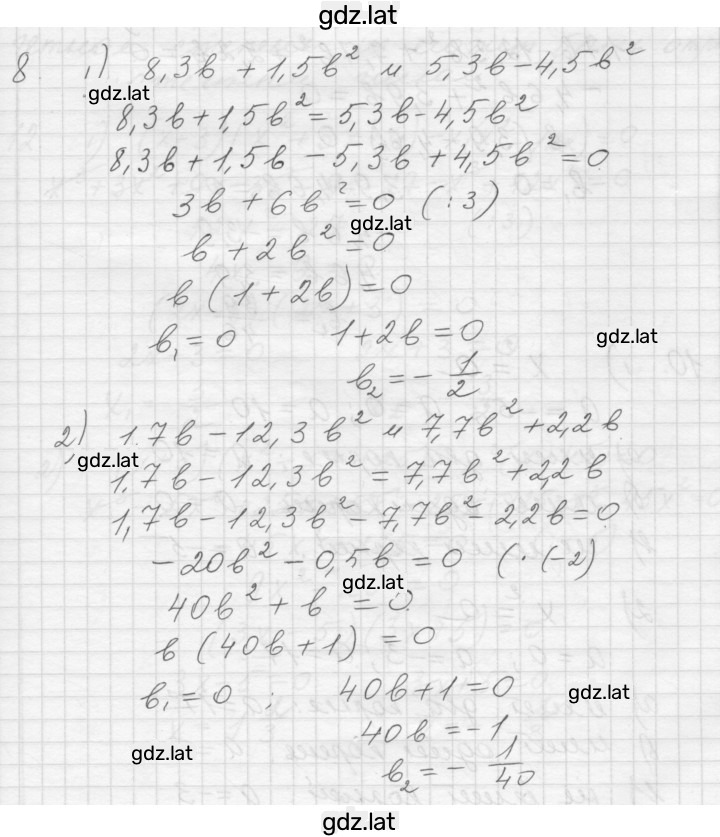 gdz.lat
8. 1) 8,3в + 1,5в² и 5,3в - 4,5в²
gdz.lat
8,3в + 1,5в² = 5,3в - 4,5в²
8,3в + 1,5в - 5,3в + 4,5в² = 0
3в + 6в² = 0 (:3)
gdz.lat
в + 2в² = 0
в (1 + 2в) = 0
в₁ = 0 1 + 2в = 0 gdz.lat
в₂ = - 1/2
2) 1.7в - 12,3в² и 7,7в² + 2,2в
gdz.lat
1,7в - 12,3в² = 7,7в² + 2,2в
1,7в - 12,3в² - 7,7в² - 2,2в = 0
-20в² - 0,5в = 0 (· (-2)
gdz.lat
40в² + в = 0
в (40в + 1) = 0
в₁ = 0 ; 40в + 1 = 0 gdz.lat
40в = -1
gdz.lat
в₂ = - 1/40
gdz.lat